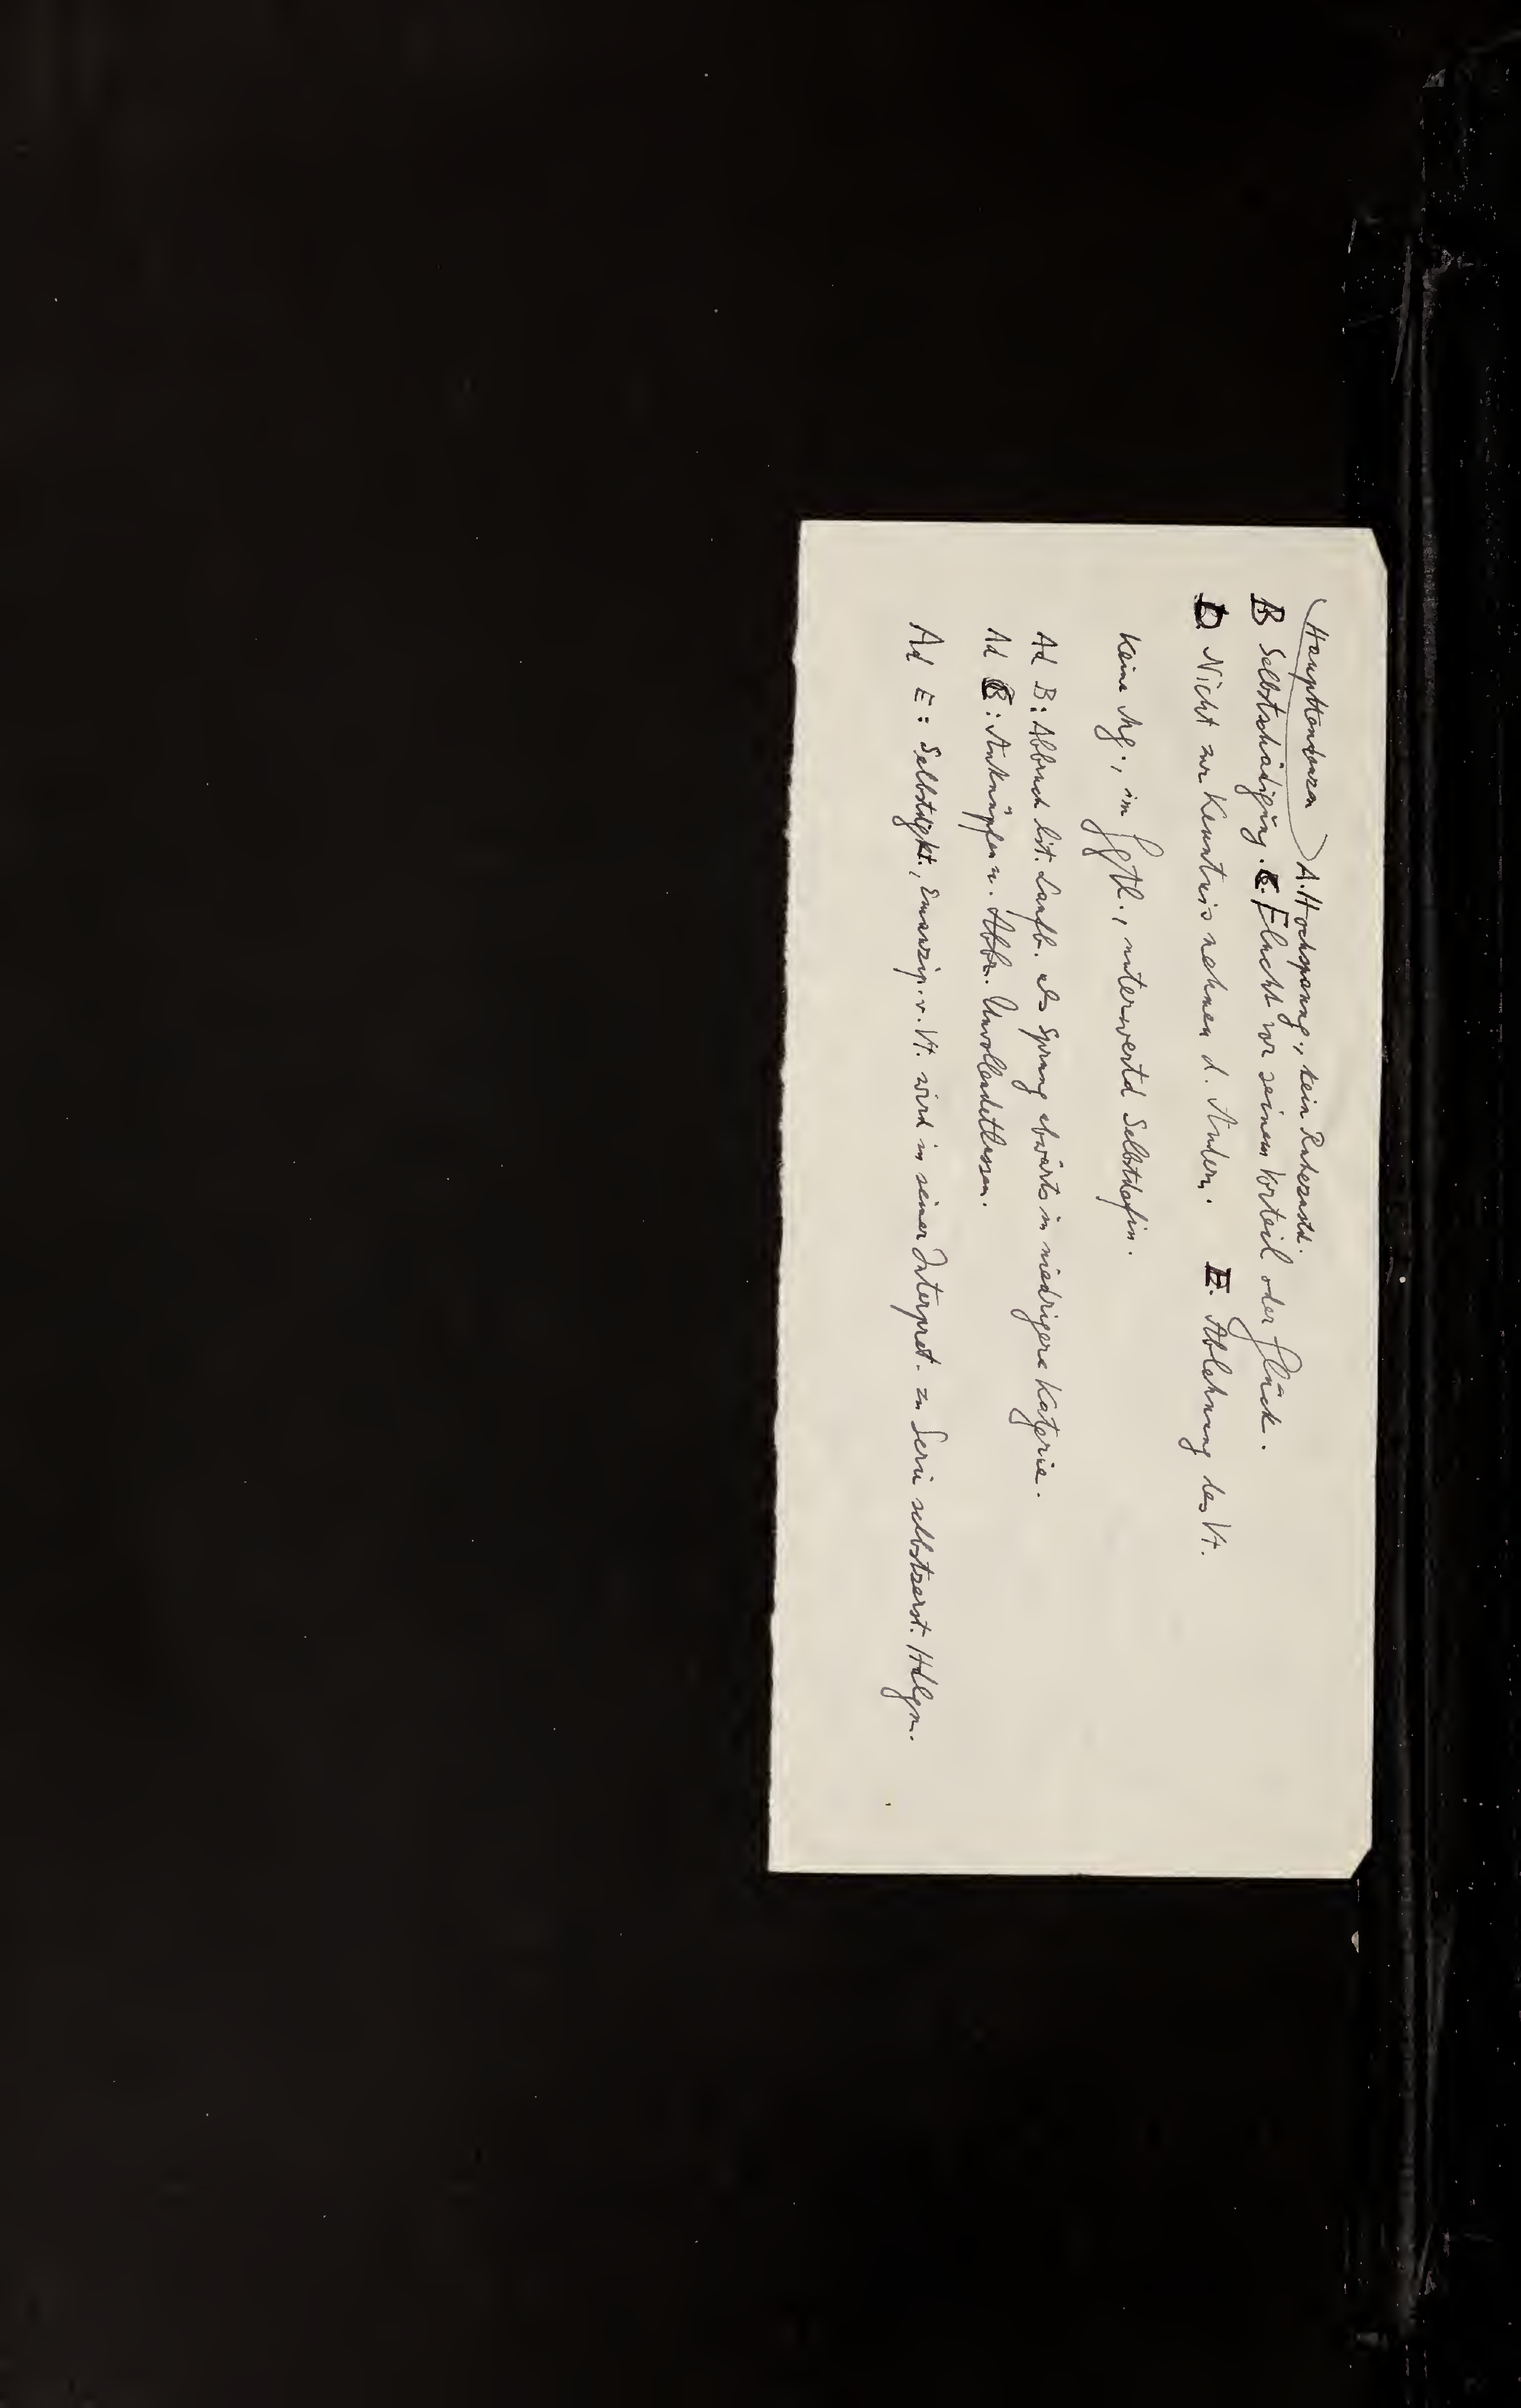 Haupttendenzen A. Hochspanng., kein Ruhezustd.
B Selbstschädigung. C. Flucht vor seinem Vorteil oder Glück.
D Nicht zur Kenntnis nehmen d. Andern. E. Ablehnung des Vt.
Keine Ng., im Ggtl., unterwertd
Ad B: Abbruch lit. Laufb. als Sprung abwärts in niedrigere
Ad C: Anknüpfen u. Abbr. Unvollendetlassen.
Ad E: Selbstdgkt., Emanzip. v. Vt. wird in seiner Interpret. zu Serie selbstzerst. Hdlgn.